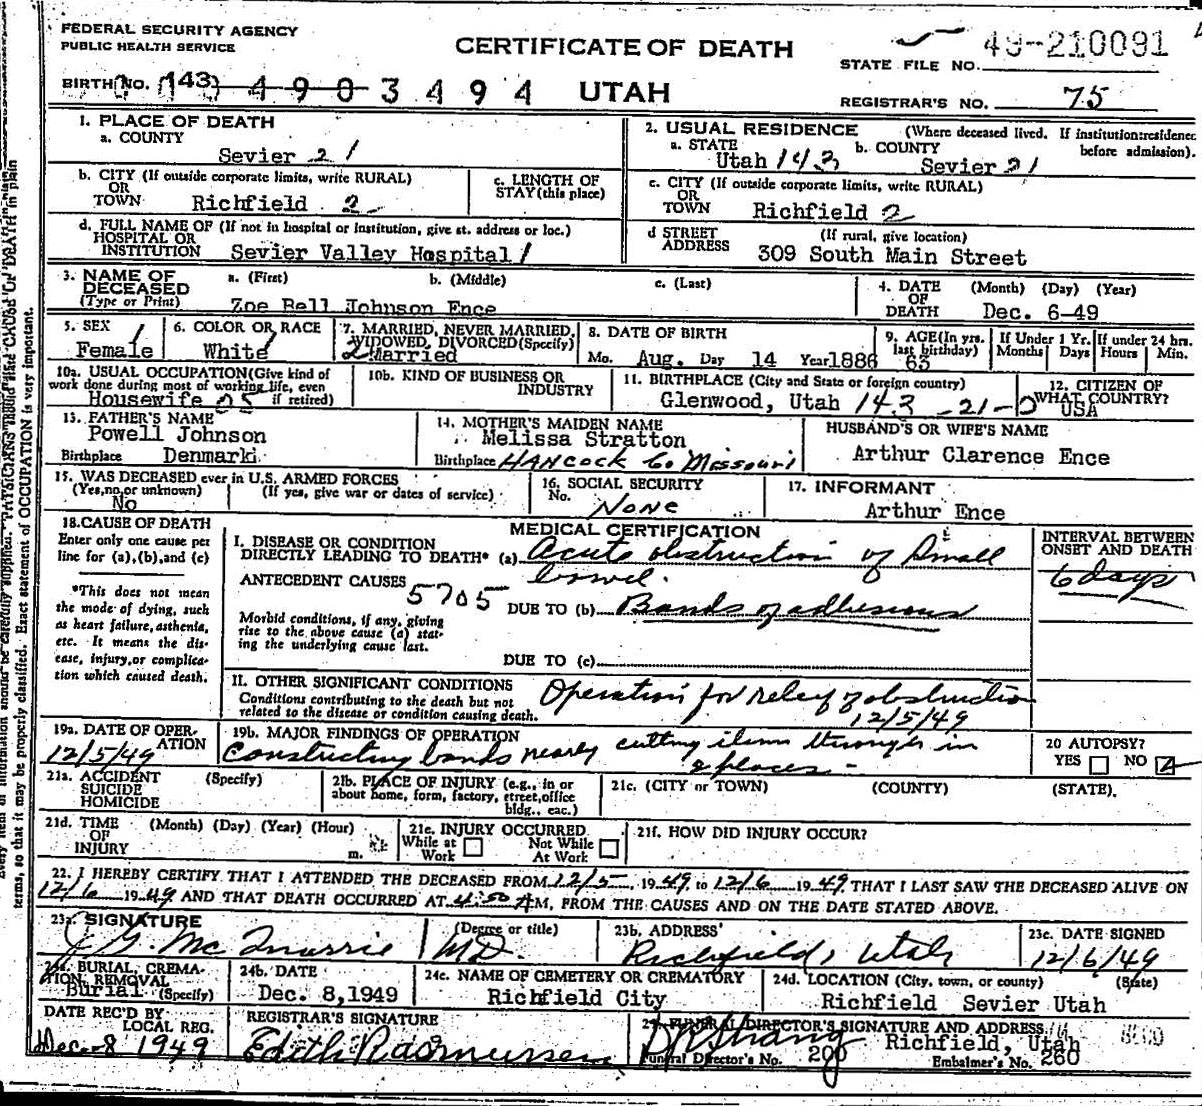 FEDERAL SECURITY AGENCY
PUBLIC HEALTH SERVICE
CERTIFICATE OF DEATH
49-210091
STATE FILE NO.
BIRTH NO. 143 4903494 UTAH
REGISTRAR'S NO. 75
1. PLACE OF DEATH
a. COUNTY
Sevier 21
2. USUAL RESIDENCE (Where deceased lived. If institution:residence before admission).
a. STATE b. COUNTY
Utah 143 Sevier 21
b. CITY (If outside corporate limits, write RURAL)
OR
TOWN Richfield 2
c. LENGTH OF
STAY (this place)
c. CITY (If outside corporate limits, write RURAL)
OR
TOWN Richfield 2
d. FULL NAME OF (If not in hospital or institution, give st. address or loc.)
HOSPITAL OR
INSTITUTION Sevier Valley Hospital 1
d STREET (If rural, give location)
ADDRESS 309 South Main Street
3. NAME OF DECEASED
(Type or Print)
a. (First) b. (Middle) c. (Last)
Zoe Bell Johnson Ence
4. DATE OF DEATH (Month) (Day) (Year)
Dec. 6-49
5. SEX
Female 1
6. COLOR OR RACE
White 1
7. MARRIED, NEVER MARRIED,
WIDOWED, DIVORCED (Specify)
2 Married
8. DATE OF BIRTH
Mo. Aug. Day 14 Year 1886
9. AGE (In yrs. last birthday)
63
If Under 1 Yr.
Months Days
If under 24 hrs.
Hours Min.
10a. USUAL OCCUPATION (Give kind of
work done during most of working life, even
if retired)
Housewife
10b. KIND OF BUSINESS OR
INDUSTRY
11. BIRTHPLACE (City and State or foreign country)
Glenwood, Utah 143 -21-0
12. CITIZEN OF
WHAT COUNTRY?
USA
13. FATHER'S NAME
Powell Johnson
Birthplace Denmark
14. MOTHER'S MAIDEN NAME
Melissa Stratton
Birthplace HANCOCK Co Missouri
HUSBAND'S OR WIFE'S NAME
Arthur Clarence Ence
15. WAS DECEASED ever in U.S. ARMED FORCES
(Yes, no, or unknown) (If yes, give war or dates of service)
No
16. SOCIAL SECURITY
No.
NONE
17. INFORMANT
Arthur Ence
18. CAUSE OF DEATH
Enter only one cause per
line for (a), (b), and (c)
*This does not mean
the mode of dying, such
as heart failure, asthenia,
etc. It means the dis-
ease, injury, or complica-
tion which caused death.
MEDICAL CERTIFICATION
I. DISEASE OR CONDITION
DIRECTLY LEADING TO DEATH* (a) Acute obstruction of Small
bowel.
ANTECEDENT CAUSES
5705
DUE TO (b) Bands of adhesions
Morbid conditions, if any, giving
rise to the above cause (a) stat-
ing the underlying cause last.
DUE TO (c)
INTERVAL BETWEEN
ONSET AND DEATH
6 days
II. OTHER SIGNIFICANT CONDITIONS
Conditions contributing to the death but not
related to the disease or condition causing death.
Operation for relief of obstruction
12/5/49
19a. DATE OF OPER-
ATION
12/5/49
19b. MAJOR FINDINGS OF OPERATION
Constricting bands nearly cutting ileum through in
2 places -
20 AUTOPSY?
YES NO
21a. ACCIDENT (Specify)
SUICIDE
HOMICIDE
21b. PLACE OF INJURY (e.g., in or
about home, form, factory, street, office
bldg., eac.)
21c. (CITY or TOWN) (COUNTY) (STATE).
21d. TIME (Month) (Day) (Year) (Hour)
OF
INJURY m.
21e. INJURY OCCURRED
While at Work Not While At Work
21f. HOW DID INJURY OCCUR?
22. I HEREBY CERTIFY THAT I ATTENDED THE DECEASED FROM 12/5, 1949 to 12/6 1949 THAT I LAST SAW THE DECEASED ALIVE ON
12/6 1949 AND THAT DEATH OCCURRED AT 4:50 AM, FROM THE CAUSES AND ON THE DATE STATED ABOVE.
23a. SIGNATURE (Degree or title)
M.D.
23b. ADDRESS
Richfield, Utah
23c. DATE SIGNED
12/6/49
24a. BURIAL, CREMA-
TION, REMOVAL
Burial (Specify)
24b. DATE
Dec. 8, 1949
24c. NAME OF CEMETERY OR CREMATORY
Richfield City
24d. LOCATION (City, town, or county) (State)
Richfield Sevier Utah
DATE REC'D BY
LOCAL REG.
Dec-8 1949
REGISTRAR'S SIGNATURE
Edith Rasmussen
25. FUNERAL DIRECTOR'S SIGNATURE AND ADDRESS
Richfield, Utah
Funeral Director's No. 200 Embalmer's No. 260
terms, so that it may be properly classified. Exact statement of OCCUPATION is very important.